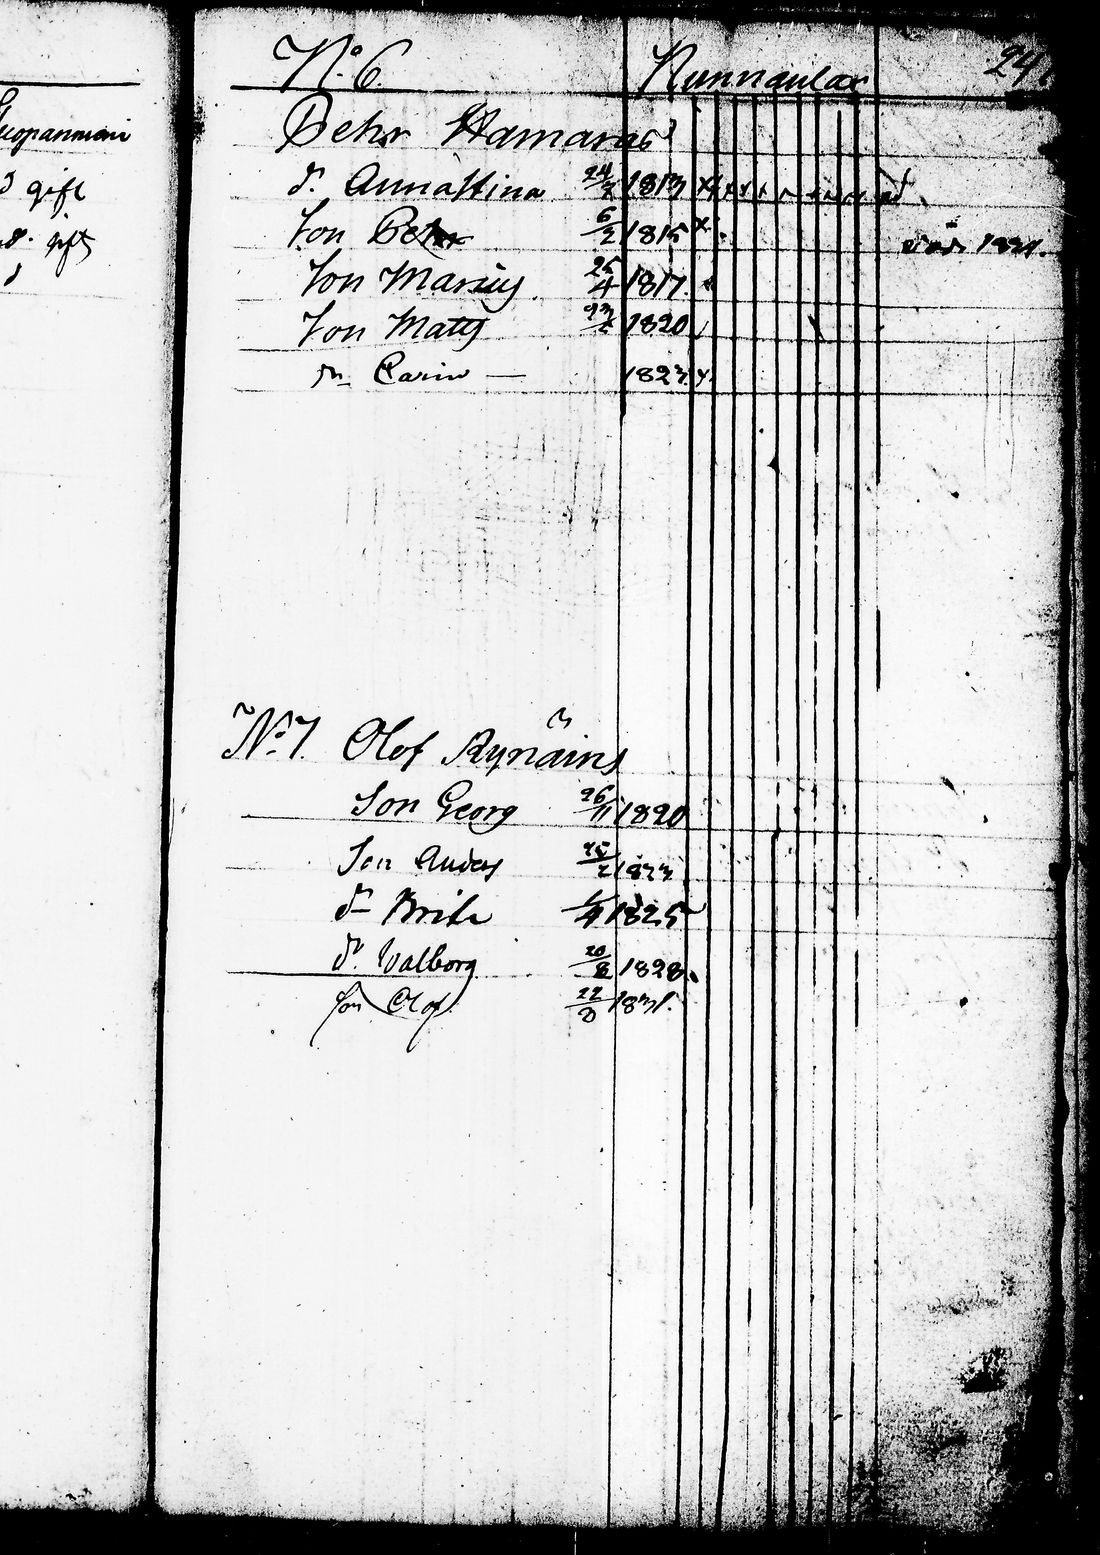 gift
gift
No 6. Nunnanlax 241
Pehr Hamarus
d. Annastina 24/2 1813
Son Pehr 6/2 1815 död 1831.
Son Marius 25/4 1817
Son Matts 1820
dr Carin — 1823
No 7. Olof Rynäins
Son Georg 26/11 1820
Son Anders 25/2 1823
dr Brita 1825
dr. Valborg 20/8 1828.
Son Olof 22/ 1831.